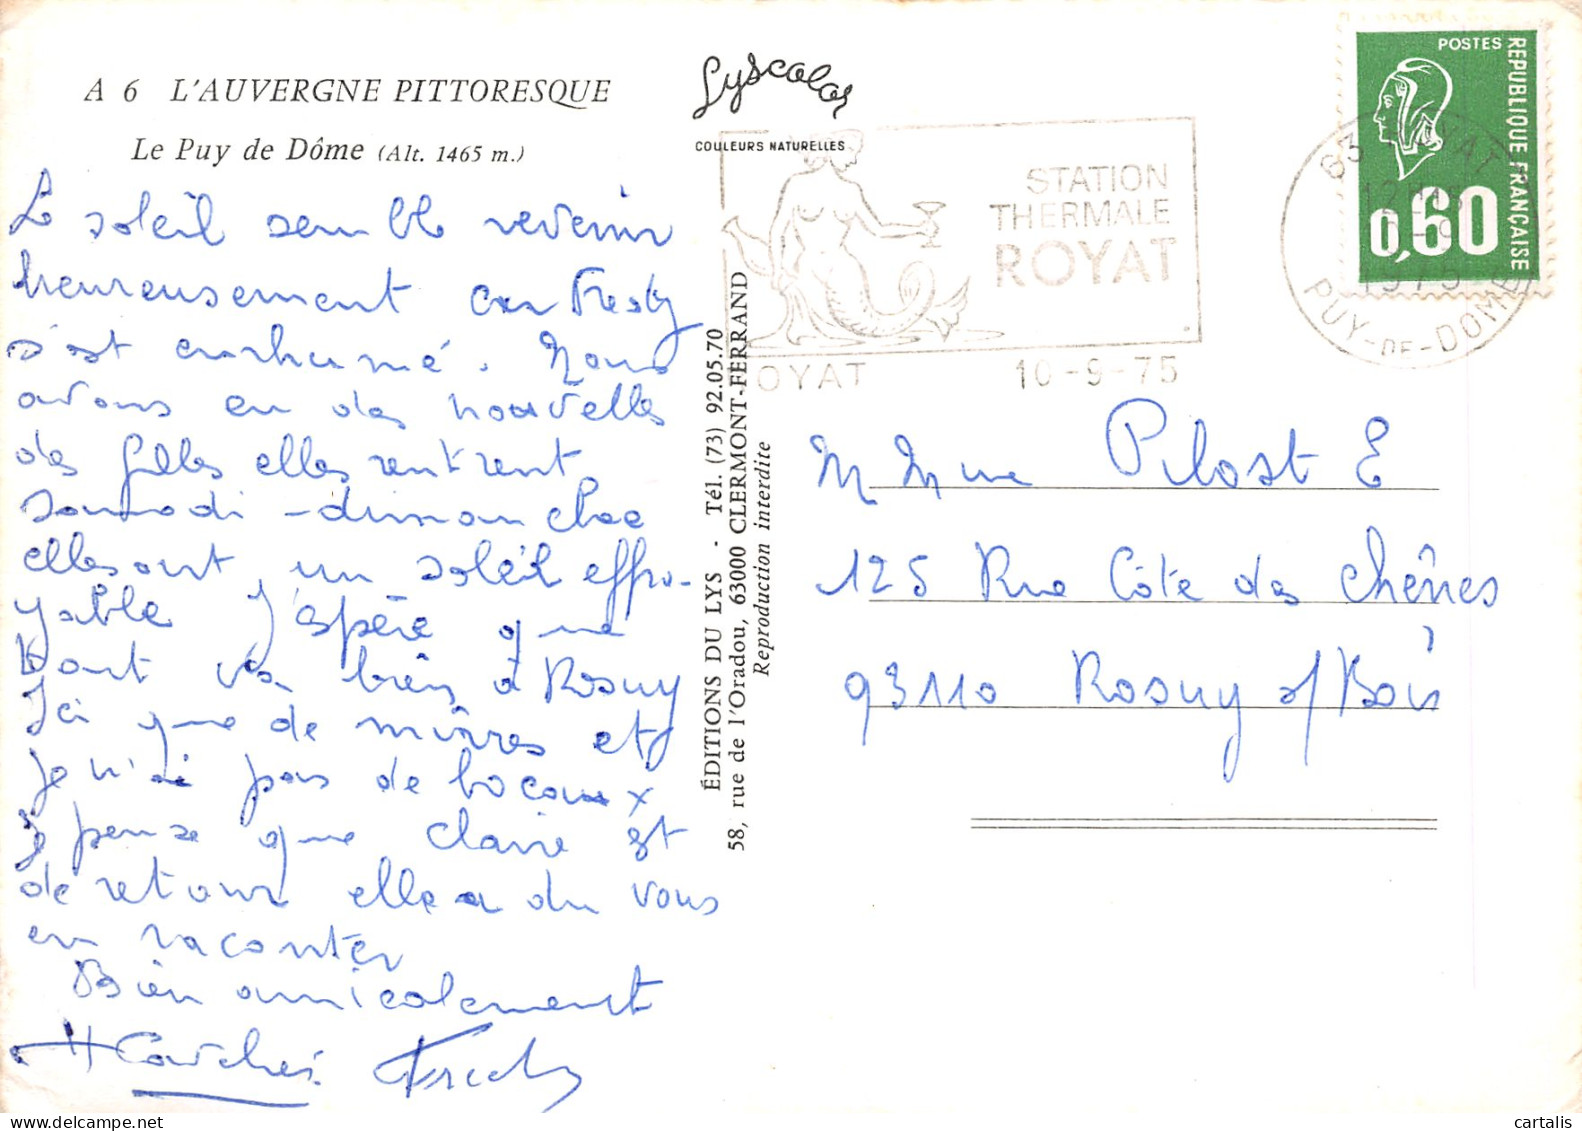 A 6 L'AUVERGNE PITTORESQUE
Le Puy de Dôme (Alt. 1465 m.)
Le soleil semble revenir
heureusement car Fredy
s'est enrhumé. Nous
avons eu des nouvelles
des filles elles rentrent
samedi - dimanche
elles ont un soleil effro-
yable J'espère que
tout va bien à Rosny
Ici que de mûres et
je n'ai pas de bocaux
je pense que Claire est
de retour elle a du vous
en raconter
Bien amicalement
Lyscolor
COULEURS NATURELLES
ÉDITIONS DU LYS - Tél. (73) 92.05.70
58, rue de l'Oradou, 63000 CLERMONT-FERRAND
Reproduction interdite
STATION
THERMALE
ROYAT
ROYAT
10-9-75
63 ROYAT
1975
PUY-DE-DOME
POSTES
REPUBLIQUE FRANÇAISE
0,60
M Mme Pilost E
125 Rue Côte des Chênes
93110 Rosny s/Bois
cartalis